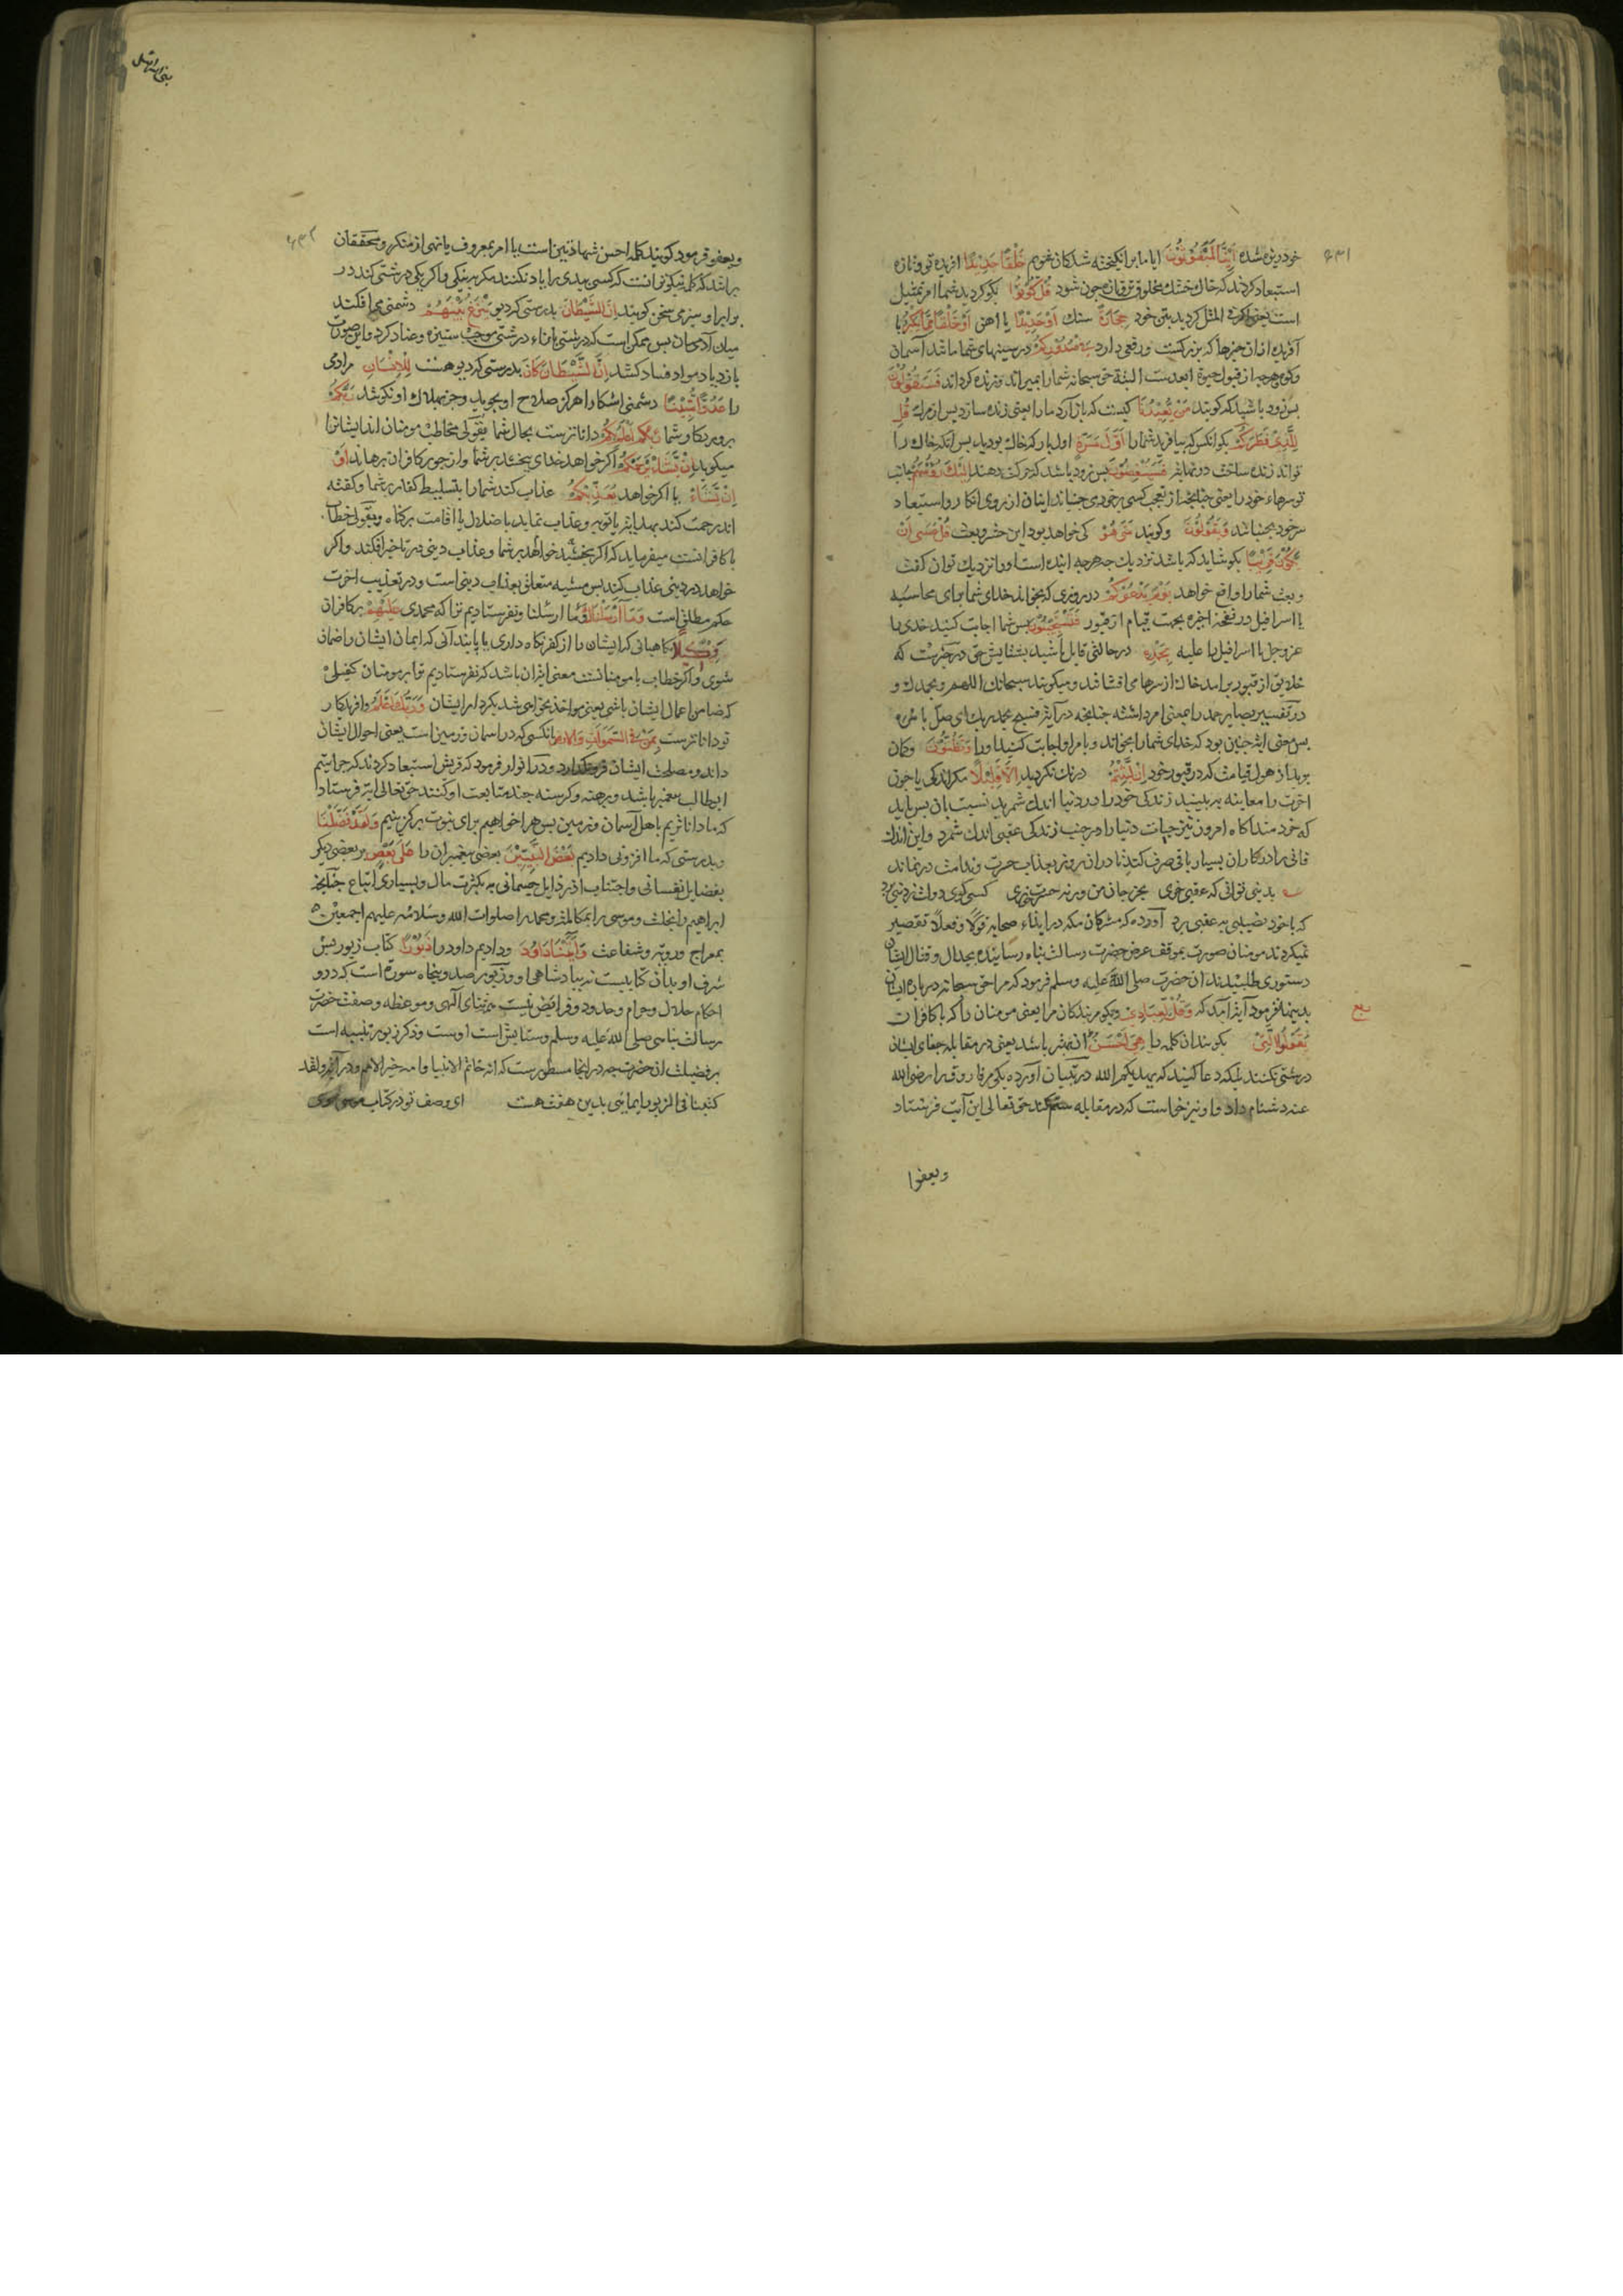 ۶۳۱
خود ریزه شده أَئِنَّا لَمَبْعُوثُونَ ایا ما برانکیخته شدکان شویم خَلْقًا جَدِيدًا افریده نو و تازه
استبعاد کردند که خاك خشك مخلوق تر و تازه چون شود قُلْ كُونُوا بکو کردید شما امر تمثیل
است یعنی فی المثل کردید بتن خود حِجَارَةً سنك أَوْ حَدِيدًا یا اهن أَوْ خَلْقًا مِمَّا يَكْبُرُ یا
آفریده از ان چیزها که بزرکست و رفعی دارد فِي صُدُورِكُمْ در سینهای شما مانند آسمان
و کوه هرچه از قبول حیوة ابعدست البته حق سبحانه شما را بمیراند و زنده کرداند فَسَيَقُولُونَ
پس زود باشد که کویند مَنْ يُعِيدُنَا کیست که باز آرد ما را یعنی زنده سازد پس از مرك قُلِ
الَّذِي فَطَرَكُمْ بکو انکس که بیافرید شما را أَوَّلَ مَرَّةٍ اول بار که خاك بودید پس انکه خاك را
تواند زنده ساخت فَسَيُنْغِضُونَ پس زود باشد که حرکت دهند إِلَيْكَ رُءُوسَهُمْ بجانب
تو سرهاء خود را یعنی چنانچه از تعجب کسی سر خود می جنباند اینان از روی انکار و استبعاد
سر خود بجنبانند وَيَقُولُونَ و کویند مَتَى هُوَ کی خواهد بود این حشر و بعث قُلْ عَسَى أَنْ
يَكُونَ قَرِيبًا بکو شاید که باشد نزدیك چه هرچه اینده است او را نزدیك توان کفت
و بعث شما را واقع خواهد يَوْمَ يَدْعُوكُمْ در روزی که بخواند خدای شما برای محاسبه
یا اسرافیل در نفخه اخیره بجهت قیام از قبور فَتَسْتَجِيبُونَ پس شما اجابت کنید خدای را
عز و جل یا اسرافیل را علیه بِحَمْدِهِ در حالتی قایل باشید بستایش حق در خبرست که
خلایق از قبور برامده خاك از سرها می افشانند و میکویند سبحانك اللهم و بحمدك و
در تفسیر بصایر حمد را بمعنی امر داشته چنانچه در آیة فسبح بحمد ربك ای صل بامره
پس معنی آیه چنین بود که خدای شما را بخواند و بامر او اجابت کنید او را وَتَظُنُّونَ و کمان
برید از هول قیامت که در قبور خود إِنْ لَبِثْتُمْ درنك نکردید إِلَّا قَلِيلًا مکر اندکی یا چون
اخرت را معاینه ببینید زندکی خود را در دنیا اندك شمرید نسبت بان پس باید
که خردمند اکاه امروز نیز حیات دنیا را در جنب زندکی عقبی اندك شمرد و این اندك
فانی را در کار ان بسیار باقی صرف کند تا در ان روز بعذاب حسرت و ندامت درنماند
بدینی توانی که عقبی خری بخر جان من ورنه حسرت خوری کسی کوی دولت ز دنیا برد
که با خود نصیبی به عقبی برد آورده که مشرکان مکه در ایذاء صحابه قولا و فعلا تقصیر
نمیکردند مومنان صورت بموقف عرض حضرت رسالت پناه رسانیده بجدال و قتال ایشان
دستوری طلبیدند ان حضرت صلی الله علیه و سلم فرمود که مرا حق سبحانه درباره ایشان
بدینها نفرمود آیة آمد که وَقُلْ لِعِبَادِي و بکو مر بندکان مرا یعنی مومنان را که با کافران
يَقُولُوا الَّتِي بکویند ان کلمه را هِيَ أَحْسَنُ ان بهتر باشد یعنی در مقابله جفای ایشان
درشتی نکنند بلکه دعا کنید که یهدیکم الله در تبیان آورده یکی مر فاروق را رضی الله
عنه دشنام داد و او نیز خواست که در مقابله ستم کند حق تعالی این آیت فرستاد
ربع
وبعضوا
بنی اسرائیل
۶۳۲
و بعفو فرمود کویند کلمه احسن شهادتین است یا امر بمعروف یا نهی از منکر و محققان
براند که کلمه نیکو انست که کسی ببدی را یاد نکنند مکر بنیکی و اکر یکی درشتی کند در
برابر او بنرمی سخن کویند إِنَّ الشَّيْطَانَ بدرستی که دیو يَنْزَغُ بَيْنَهُمْ دشمنی می افکند
میان آدمیان پس ممکن است که درشتی با ایشان موجب ستیزه و عناد کردد و این صورت
بازدیاد مواد فساد کشد إِنَّ الشَّيْطَانَ كَانَ بدرستی که دیو هست لِلْإِنْسَانِ مر ادمی
را عَدُوًّا مُبِينًا دشمنی اشکارا هرکز صلاح او نجوید و جز بهلاك او نکوشد رَبُّكُمْ
پروردکار شما أَعْلَمُ بِكُمْ داناترست بحال شما بقولی مخاطب مومنان اند ایشانرا
میکوید إِنْ يَشَأْ يَرْحَمْكُمْ اکر خواهد خدای ببخشد بر شما و از جور کافران برهاند أَوْ
إِنْ يَشَأْ یا اکر خواهد يُعَذِّبْكُمْ عذاب کند شما را بتسلیط کفار بر شما و کفته
اند رحمت کند بهدایت یا توبه و عذاب نماید باضلال یا اقامت بر کناه و بقولی خطاب
با کافرانست میفرماید که اکر بخشید خواهد بر شما و عذاب دینی در تاخیر افکند و اکر
خواهد در دینی عذاب کند پس مشیه متعلق بعذاب دینی است و در تعذیب اخرت
حکم مطلق است وَمَا أَرْسَلْنَاكَ و ما ارسلنا و نفرستادیم ترا که محمدی عَلَيْهِمْ بر کافران
وَكِيلًا نکاهبانی که ایشان را از کفر نکاه داری یا پایندانی که ایمان ایشان را ضمان
شوی و اکر خطاب با مومنانست معنی ان باشد که نفرستادیم ترا بر مومنان کفیلی
که ضامن اعمال ایشان باشی یعنی مواخذ نخواهی شد بکردار ایشان وَرَبُّكَ أَعْلَمُ و افریدکار
تو داناترست بِمَنْ فِي السَّمَوَاتِ وَالْأَرْضِ بانکسی که در اسمان و زمین است یعنی احوال ایشان
داند و مصلحت ایشان فرو نکذارد و در انوار فرمود که قریش استبعاد کردند که چرا یتیم
ابیطالب پیغمبر باشد و برهنه و کرسنه چند متابعت او کنند حق تعالی آیة فرستاد
که ما داناتریم باهل آسمان و زمین پس هر که خواهیم برای نبوت برکزینیم وَلَقَدْ فَضَّلْنَا
و بدرستی که ما افزونی دادیم بَعْضَ النَّبِيِّينَ بعضی پیغمبران را عَلَى بَعْضٍ بر بعضی دیکر
بفضایل نفسانی و اجتناب از رذایل جسمانی نه بکثرت مال و بسیاری اتباع چنانچه
ابراهیم را بخلت و موسی را بمکالمه و محمد را صلوات الله و سلامه علیهم اجمعین
بمعراج و رویت و شفاعت وَآتَيْنَا دَاوُدَ و دادیم داود را زَبُورًا کتاب زبور پس
شرف او بدان کتابیست نه بپادشاهی او و زبور صد و پنجاه سوره است که درو
احکام حلال و حرام و حدود و فرایض نیست جز ثنای آلهی و موعظه و صفت حضرت
رسالت پناهی صلی الله علیه و سلم و ستایش است اوست و ذکر زبور تنبیه است
بر فضیلت ان حضرت چه در انجا مسطورست که انه خاتم الانبیا و امه خیر الامم و در آیة و لقد
کتبنا فی الزبور ایمائی بدین هفت هست ای وصف تو در کتاب موسی